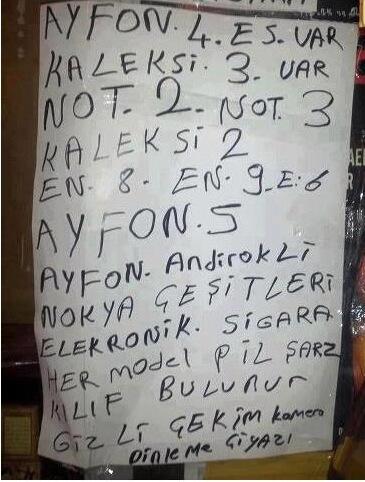 AYFON. 4. ES. VAR
KALEKSİ. 3. VAR
NOT. 2. NOT. 3
KALEKSİ 2
EN. 8. EN. 9. E:6
AYFON. 5
AYFON. ANdirokLi
NOKYA ÇEŞİTLERİ
ELEKRONİK. SİGARA
HER MODEL PİL ŞARZ
KILIF BULUNUR
GİZLİ ÇEKİM Kamera
DİNLEME CİYAZI